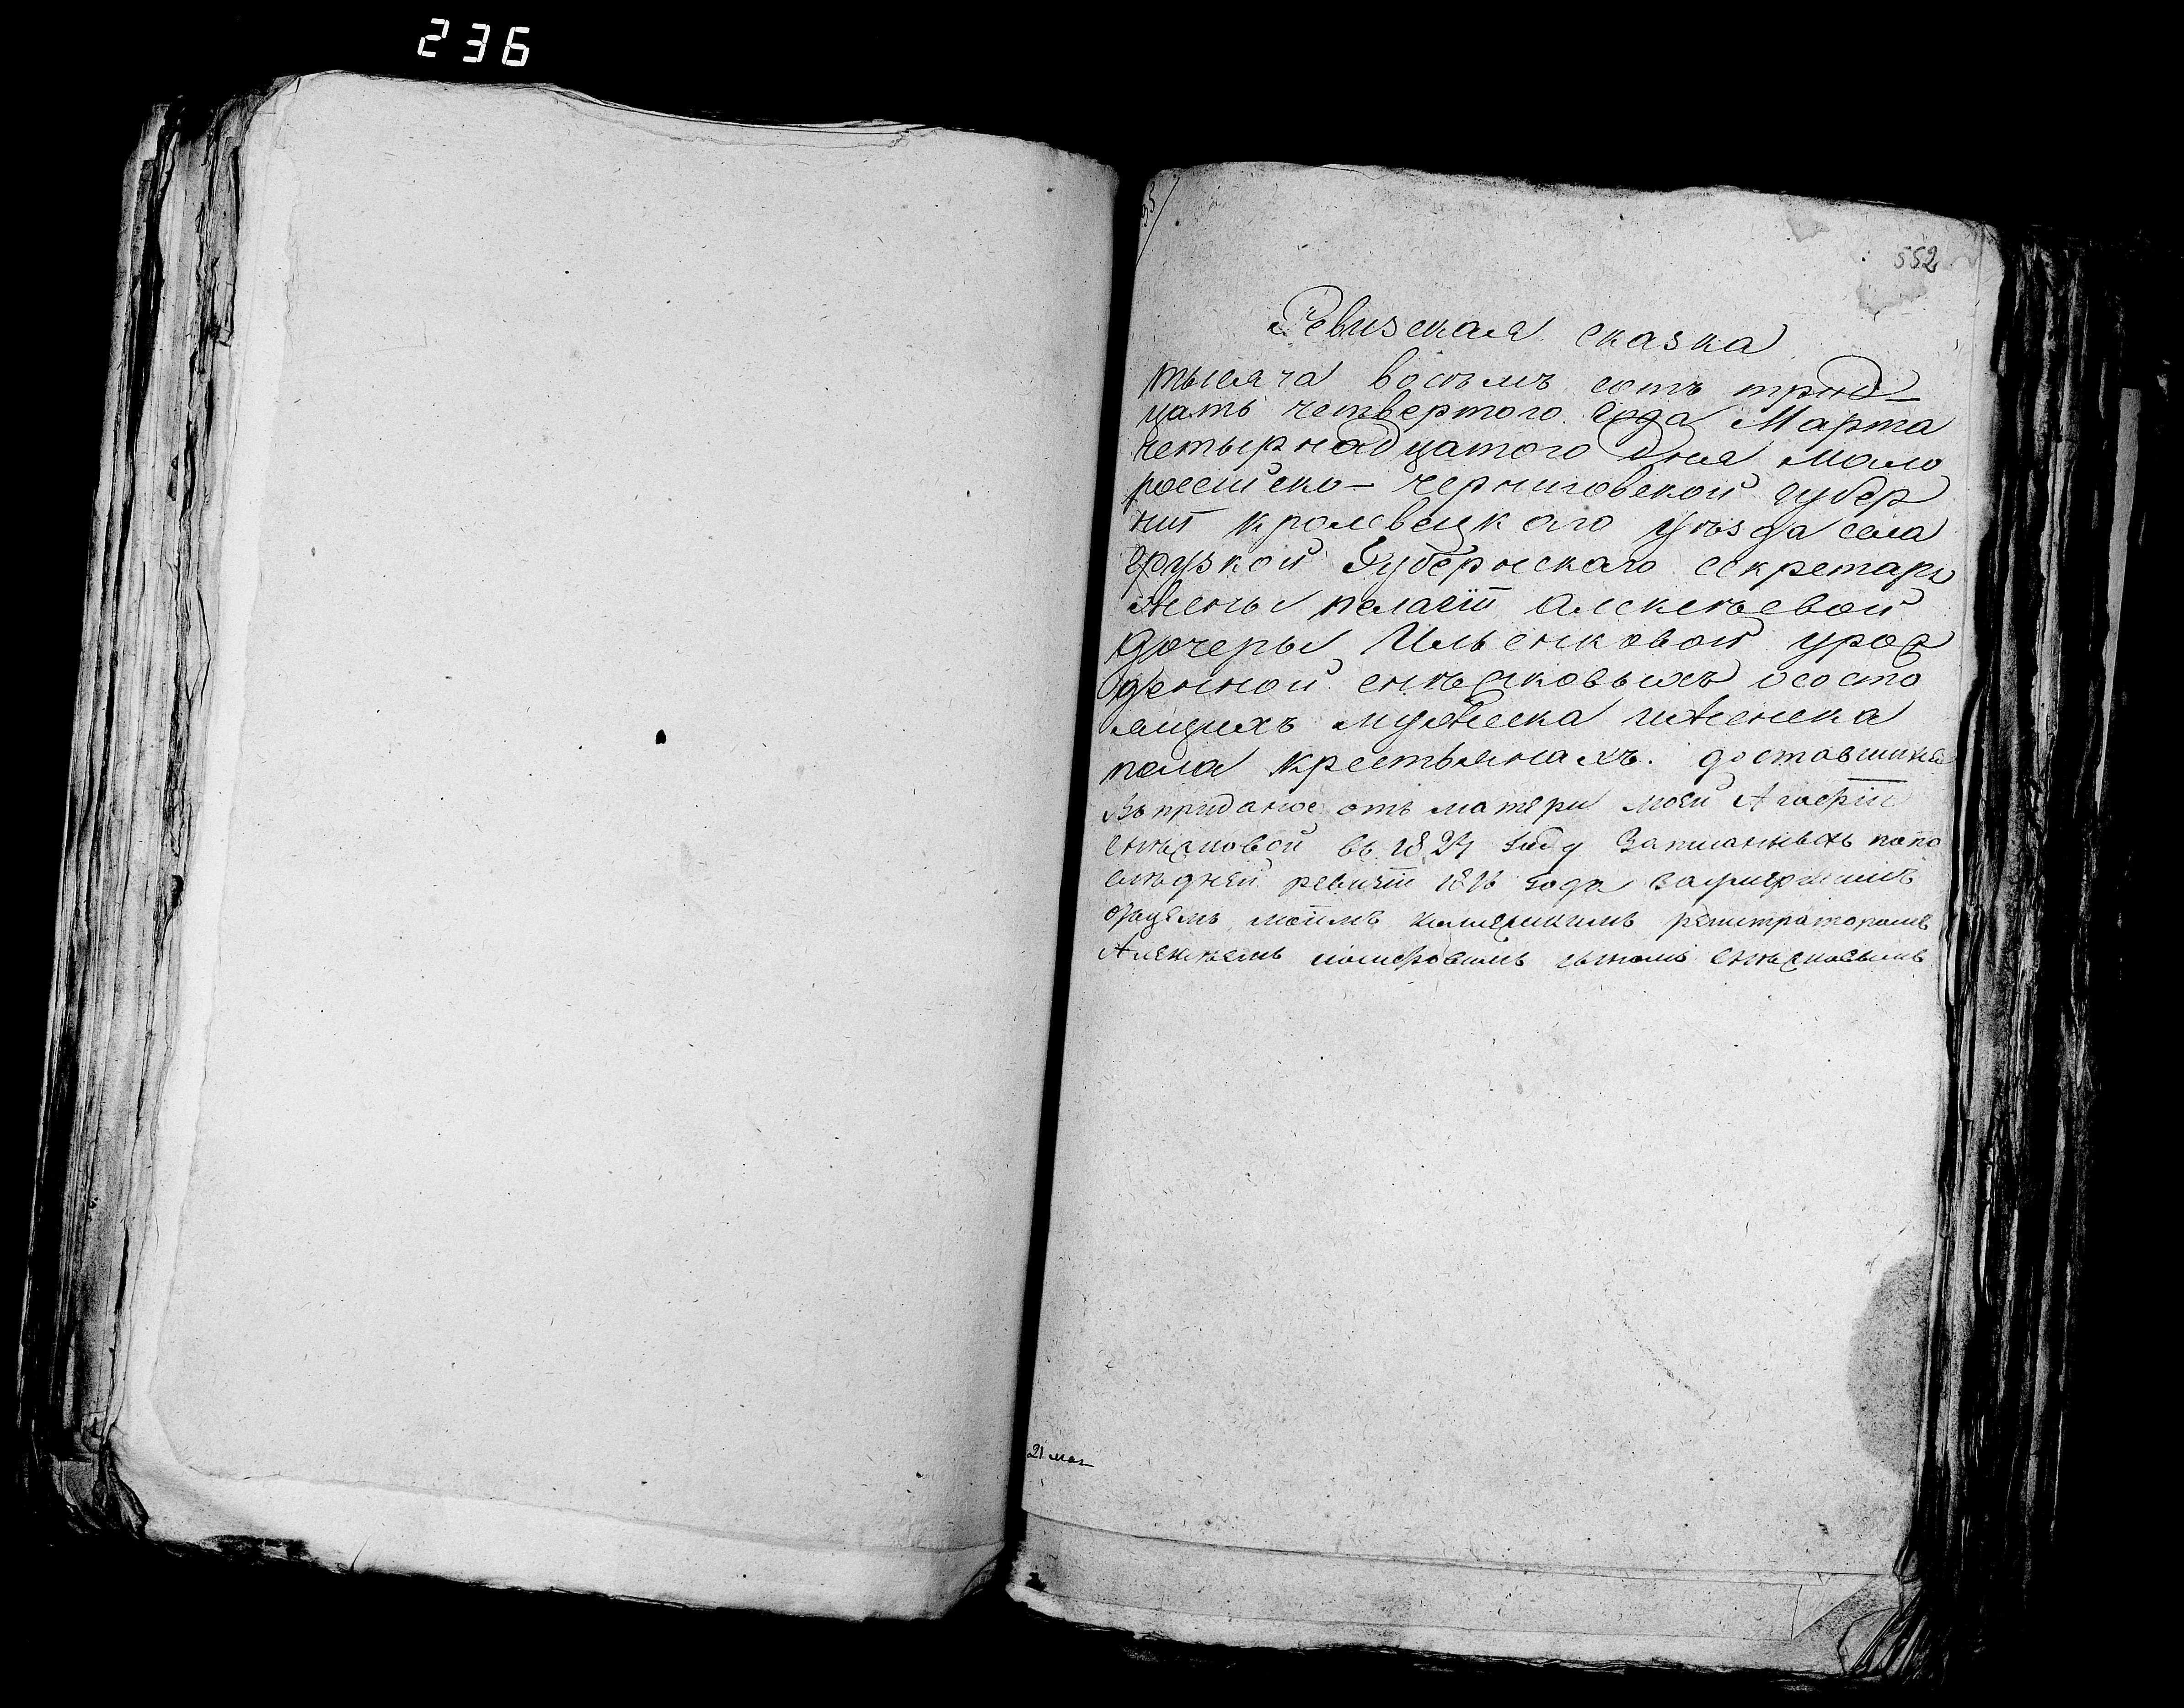 236
552
Ревизская сказка
тысяча восъмъ сотъ трид-
цать четвертого года Марта
четырнадцатого дня мало
россійско-черниговской губер
ніи кролевецкаго уѣзда села
грузкой Губернскаго секретаря
жены пелагіи алексѣевой
дочеры Ильенковой урож
денной снѣжковыхъ осостo
ящихъ мужеска иженска
пола крестьянахъ. доставшихся
Въ приданое отъ матери моей Агафіи
снѣжковой въ 1824 году Записанныхъ по по
слѣдней ревизіи 1816 года заумершимъ
отцемъ моимъ колежскимъ регистраторомъ
Алексѣемъ сыномъ снѣжковымъ
21 мая